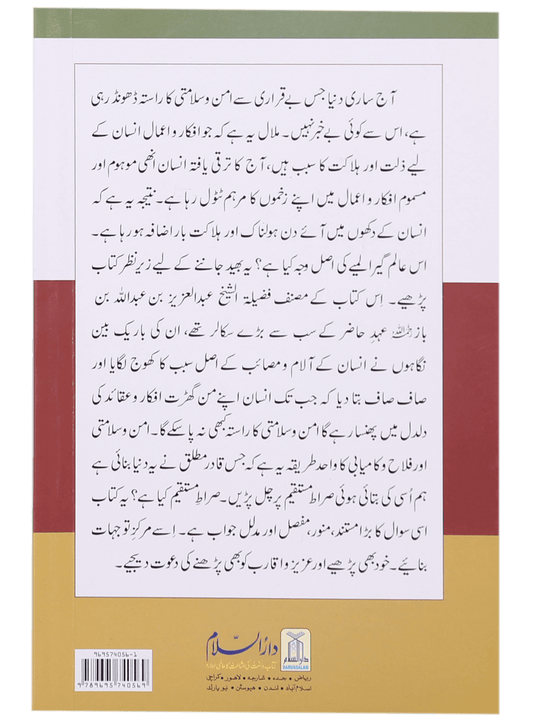 آج ساری دنیا جس بے قراری سے امن وسلامتی کا راستہ ڈھونڈ رہی
ہے، اس سے کوئی بے خبر نہیں۔ ملال یہ ہے کہ جو افکار و اعمال انسان کے
لیے ذلت اور ہلاکت کا سبب ہیں، آج کا ترقی یافتہ انسان انھی موہوم اور
مسموم افکار و اعمال میں اپنے زخموں کا مرہم ٹٹول رہا ہے۔ نتیجہ یہ ہے کہ
انسان کے دکھوں میں آئے دن ہولناک اور ہلاکت بار اضافہ ہو رہا ہے۔
اس عالم گیر المیے کی اصل وجہ کیا ہے؟ یہ بھید جاننے کے لیے زیرِ نظر کتاب
پڑھیے۔ اِس کتاب کے مصنف فضیلۃ الشیخ عبدالعزیز بن عبداللہ بن
باز رحمہ اللہ عہدِ حاضر کے سب سے بڑے سکالر تھے، ان کی باریک بین
نگاہوں نے انسان کے آلام و مصائب کے اصل سبب کا کھوج لگایا اور
صاف صاف بتا دیا کہ جب تک انسان اپنے من گھڑت افکار و عقائد کی
دلدل میں پھنسا رہے گا امن وسلامتی کا راستہ کبھی نہ پا سکے گا۔ امن وسلامتی
اور فلاح و کامیابی کا واحد طریقہ یہ ہے کہ جس قادر مطلق نے یہ دنیا بنائی ہے
ہم اُسی کی بتائی ہوئی صراط مستقیم پر چل پڑیں۔ صراط مستقیم کیا ہے؟ یہ کتاب
اسی سوال کا بڑا مستند، منور، مفصل اور مدلل جواب ہے۔ اِسے مرکز توجہات
بنائیے۔ خود بھی پڑھیے اور عزیز و اقارب کو بھی پڑھنے کی دعوت دیجیے۔
دارالسلام
کتاب و سنت کی اشاعت کا عالمی ادارہ
دارالسلام
DARUSSALAM
ریاض • جدہ • شارجہ • لاہور • کراچی
اسلام آباد • لندن • ہیوسٹن • نیو یارک
969574056-1
9 789695 740569